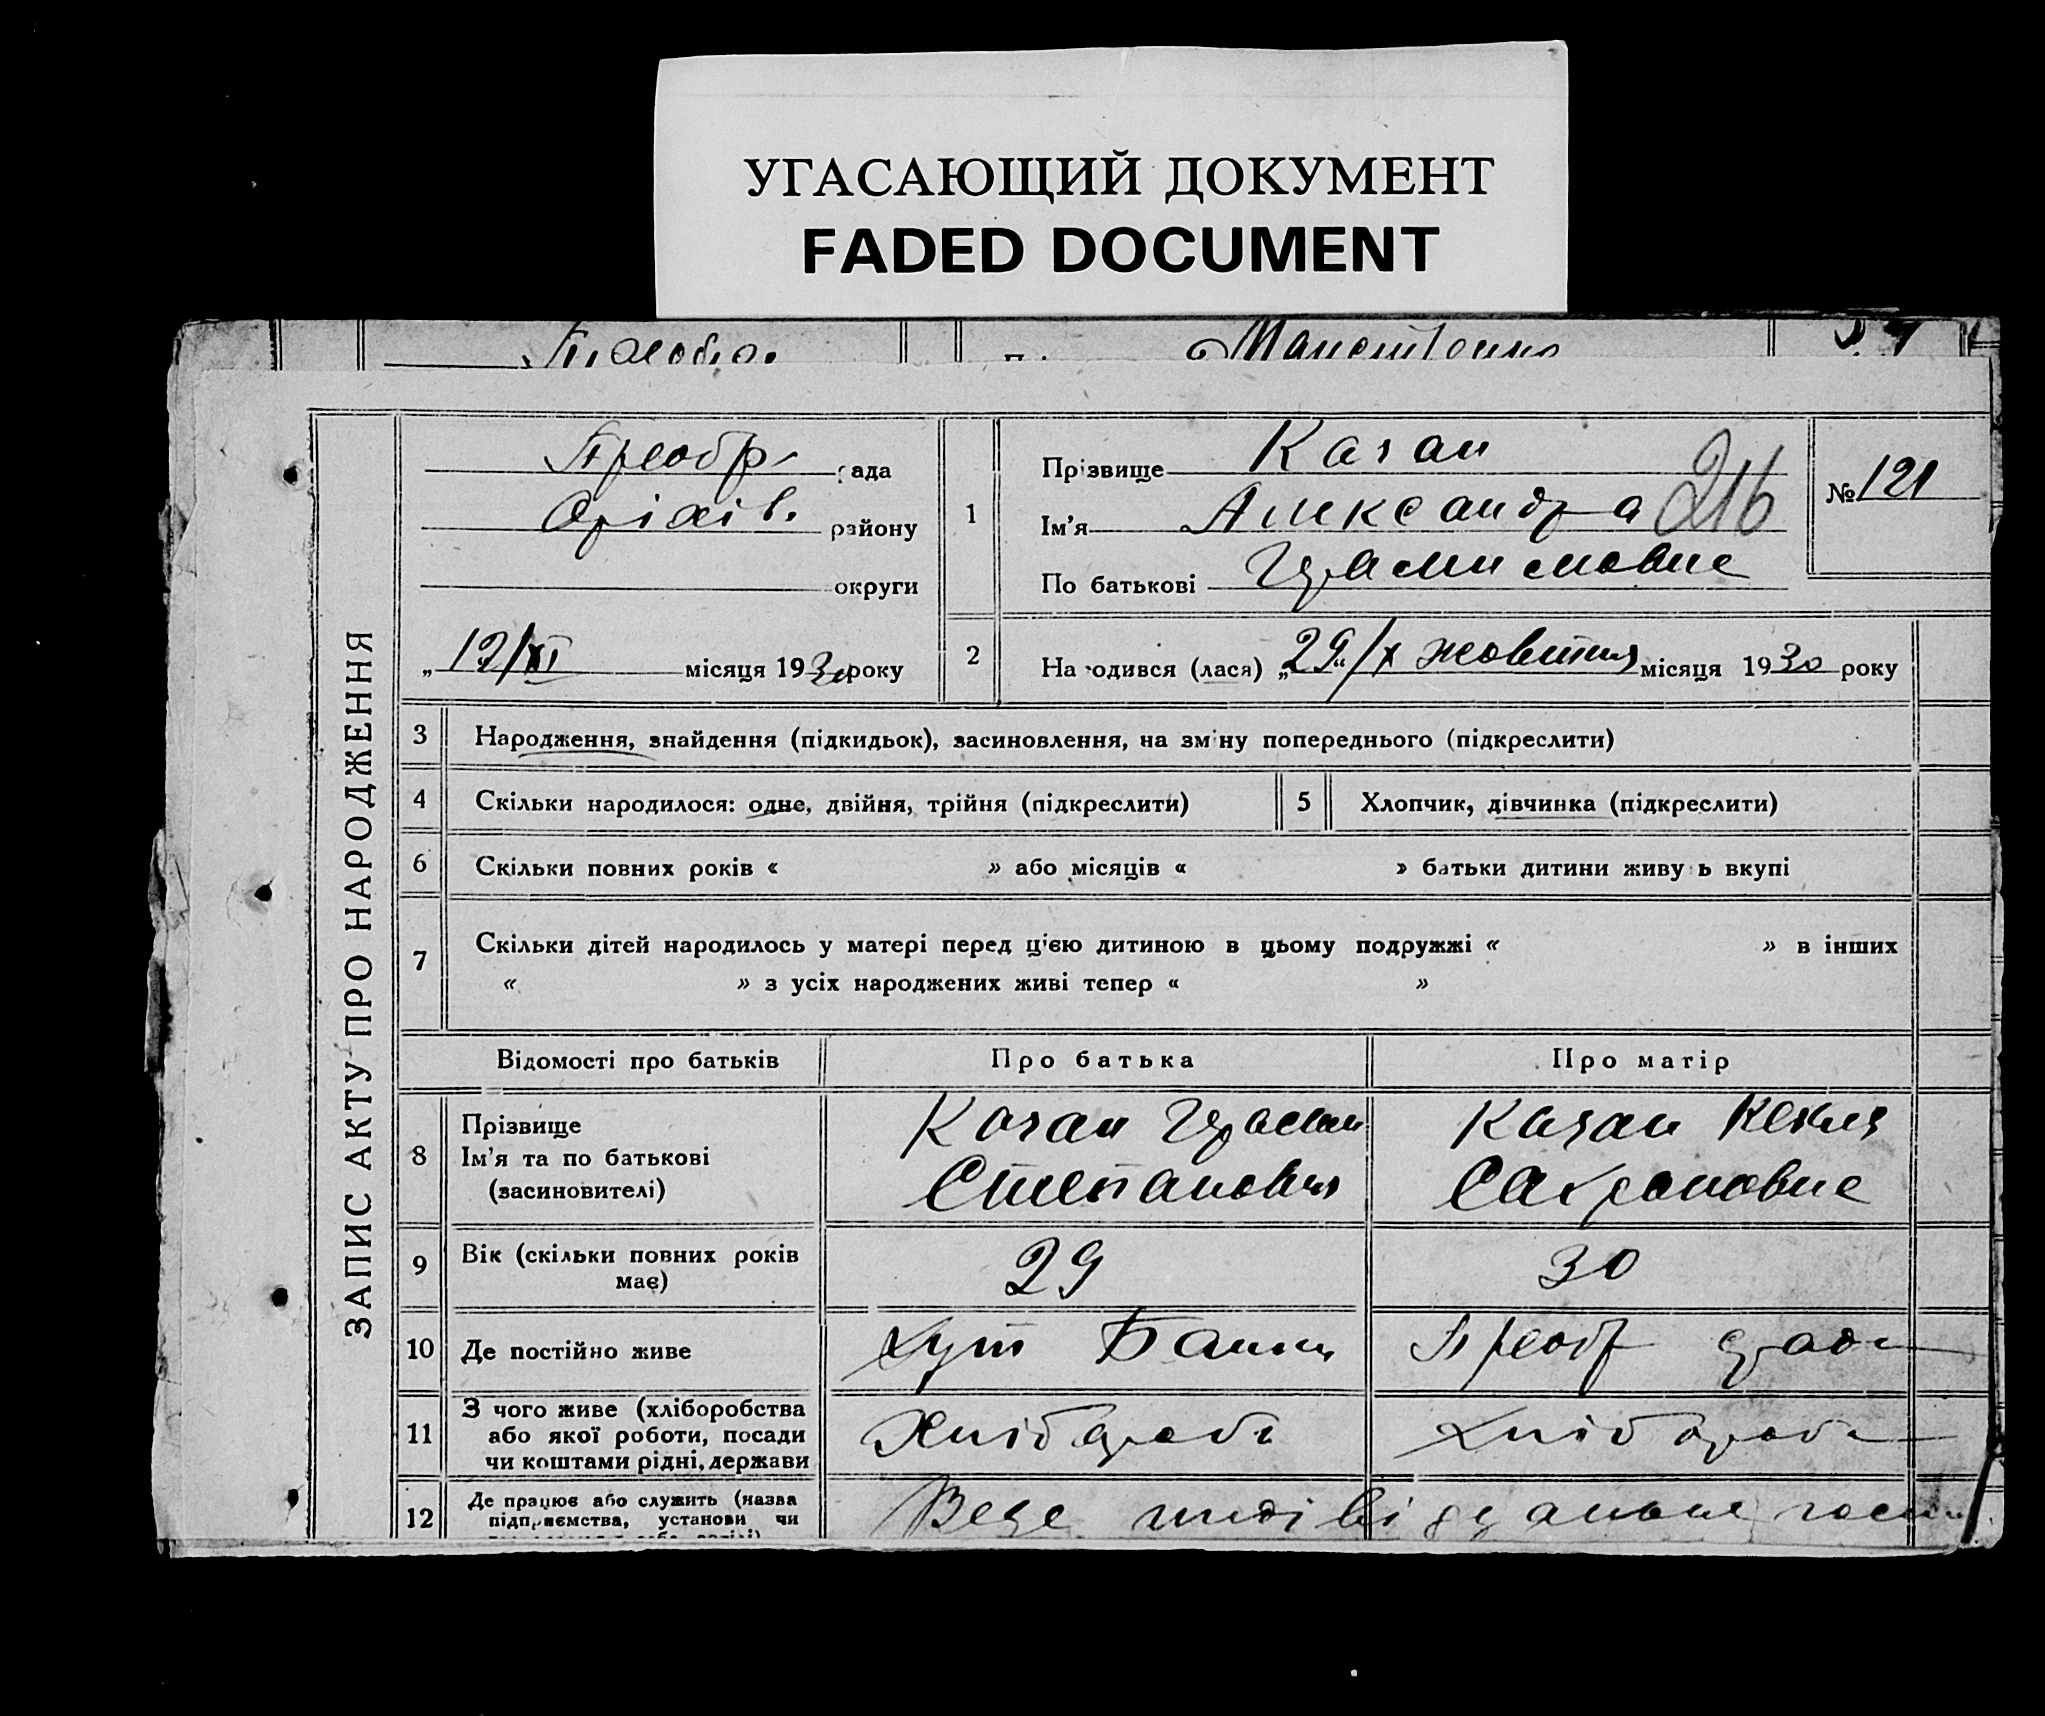 УГАСАЮЩИЙ ДОКУМЕНТ
FADED DOCUMENT
ЗАПИС АКТУ ПРО НАРОДЖЕННЯ
Преобр. рада
Оріхів. району
округи
„12/XI місяця 1930 року
1
Прізвище Качан
Ім'я Александра 216
По батькові
№ 121
2
Народився (лася) „29“/X жовтня місяця 1930 року
3 Народження, знайдення (підкидьок), засиновлення, на зміну попереднього (підкреслити)
4 Скільки народилося: одне, двійня, трійня (підкреслити)
5 Хлопчик, дівчинка (підкреслити)
6 Скільки повних років « » або місяців « » батьки дитини живуть вкупі
7 Скільки дітей народилось у матері перед цією дитиною в цьому подружжі « » в інших
« » з усіх народжених живі тепер « »
Відомості про батьків Про батька Про матір
8 Прізвище
Ім'я та по батькові
(засиновителі)
Качан Герасим
Степанович
Качан Кекля
Сафроновне
9 Вік (скільки повних років
має)
29
30
10 Де постійно живе
Хут
Преобр ради
11 З чого живе (хліборобства
або якої роботи, посади
чи коштами рідні, держави
Хлібороб
Хлібороб
12 Де працює або служить (назва
підприємства, установи чи
Веде